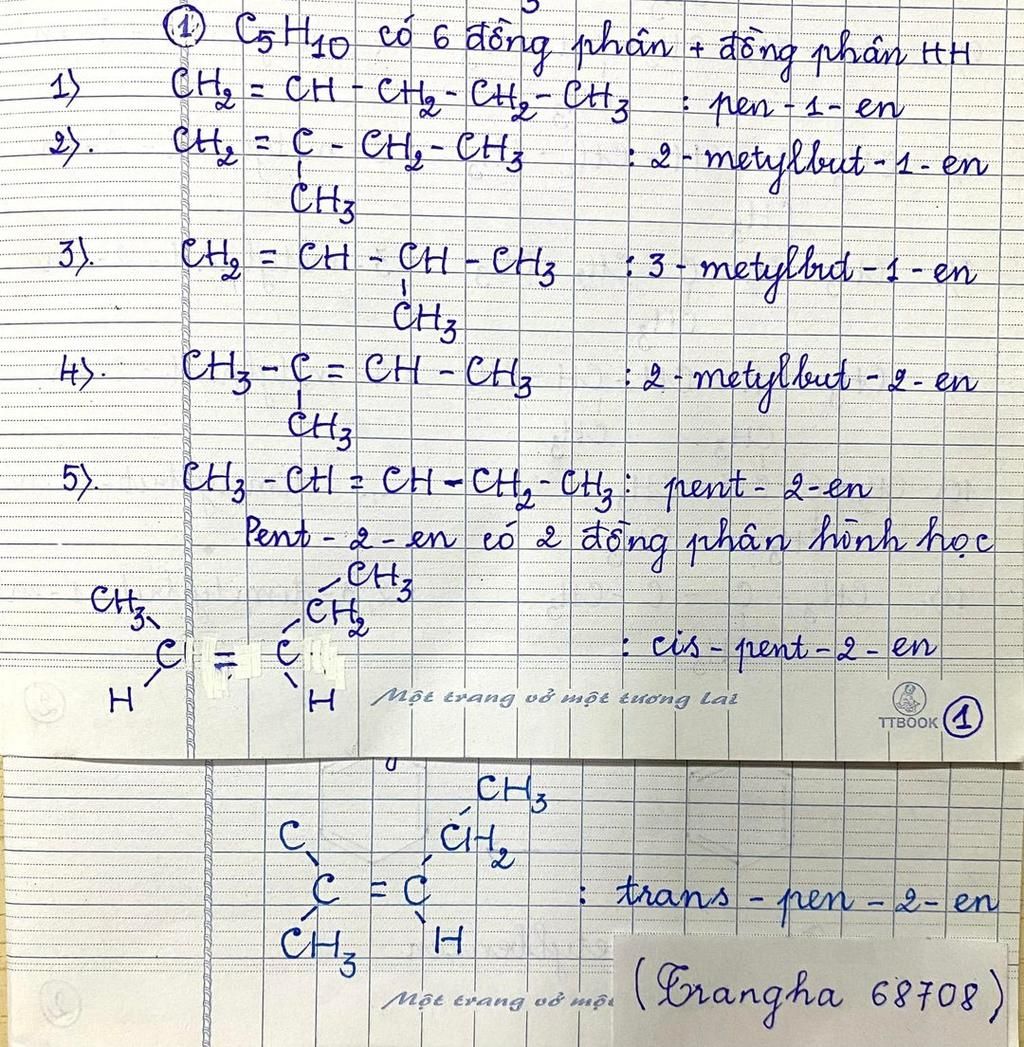 ① C5H10 có 6 đồng phân + đồng phân HH
1) CH2 = CH - CH2 - CH2 - CH3 : pen - 1 - en
2). CH2 = C - CH2 - CH3 : 2 - metylbut - 1 - en
CH3
3). CH2 = CH - CH - CH3 : 3 - metylbut - 1 - en
CH3
4). CH3 - C = CH - CH3 : 2 - metylbut - 2 - en
CH3
5). CH3 - CH = CH - CH2 - CH3 : pent - 2 - en
Pent - 2 - en có 2 đồng phân hình học
CH3
CH3 CH2
C = C : cis - pent - 2 - en
H H
Một trang vở một tương lai
TTBOOK ①
CH3
C CH2
C = C : trans - pen - 2 - en
CH3 H
Một trang vở một
(Trangha 68708)